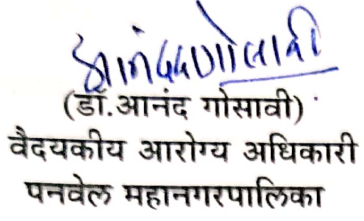 (डॉ.आनंद गोसावी)
वैदयकीय आरोग्य अधिकारी
पनवेल महानगरपालिका